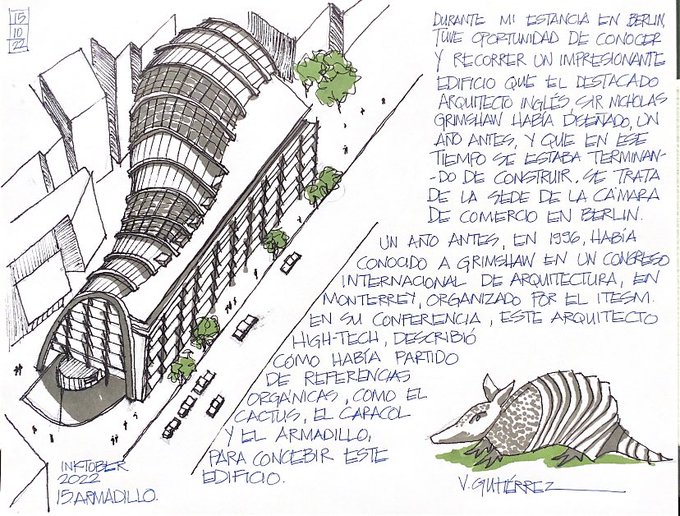 15
10
22
DURANTE MI ESTANCIA EN BERLIN,
TUVE OPORTUNIDAD DE CONOCER
Y RECORRER UN IMPRESIONANTE
EDIFICIO QUE EL DESTACADO
ARQUITECTO INGLÉS, SIR NICHOLAS
GRIMSHAW HABÍA DISEÑADO, UN
AÑO ANTES, Y QUE EN ESE
TIEMPO SE ESTABA TERMINAN-
-DO DE CONSTRUIR. SE TRATA
DE LA SEDE DE LA CÁMARA
DE COMERCIO EN BERLIN.
UN AÑO ANTES, EN 1996, HABÍA
CONOCIDO A GRIMSHAW EN UN CONGRESO
INTERNACIONAL DE ARQUITECTURA, EN
MONTERREY, ORGANIZADO POR EL ITESM.
EN SU CONFERENCIA, ESTE ARQUITECTO
HIGH-TECH, DESCRIBIÓ
CÓMO HABÍA PARTIDO
DE REFERENCIAS
ORGÁNICAS, COMO EL
CACTUS, EL CARACOL
Y EL ARMADILLO,
PARA CONCEBIR ESTE
EDIFICIO.
INKTOBER
2022
15 ARMADILLO.
V. GUTIÉRREZ